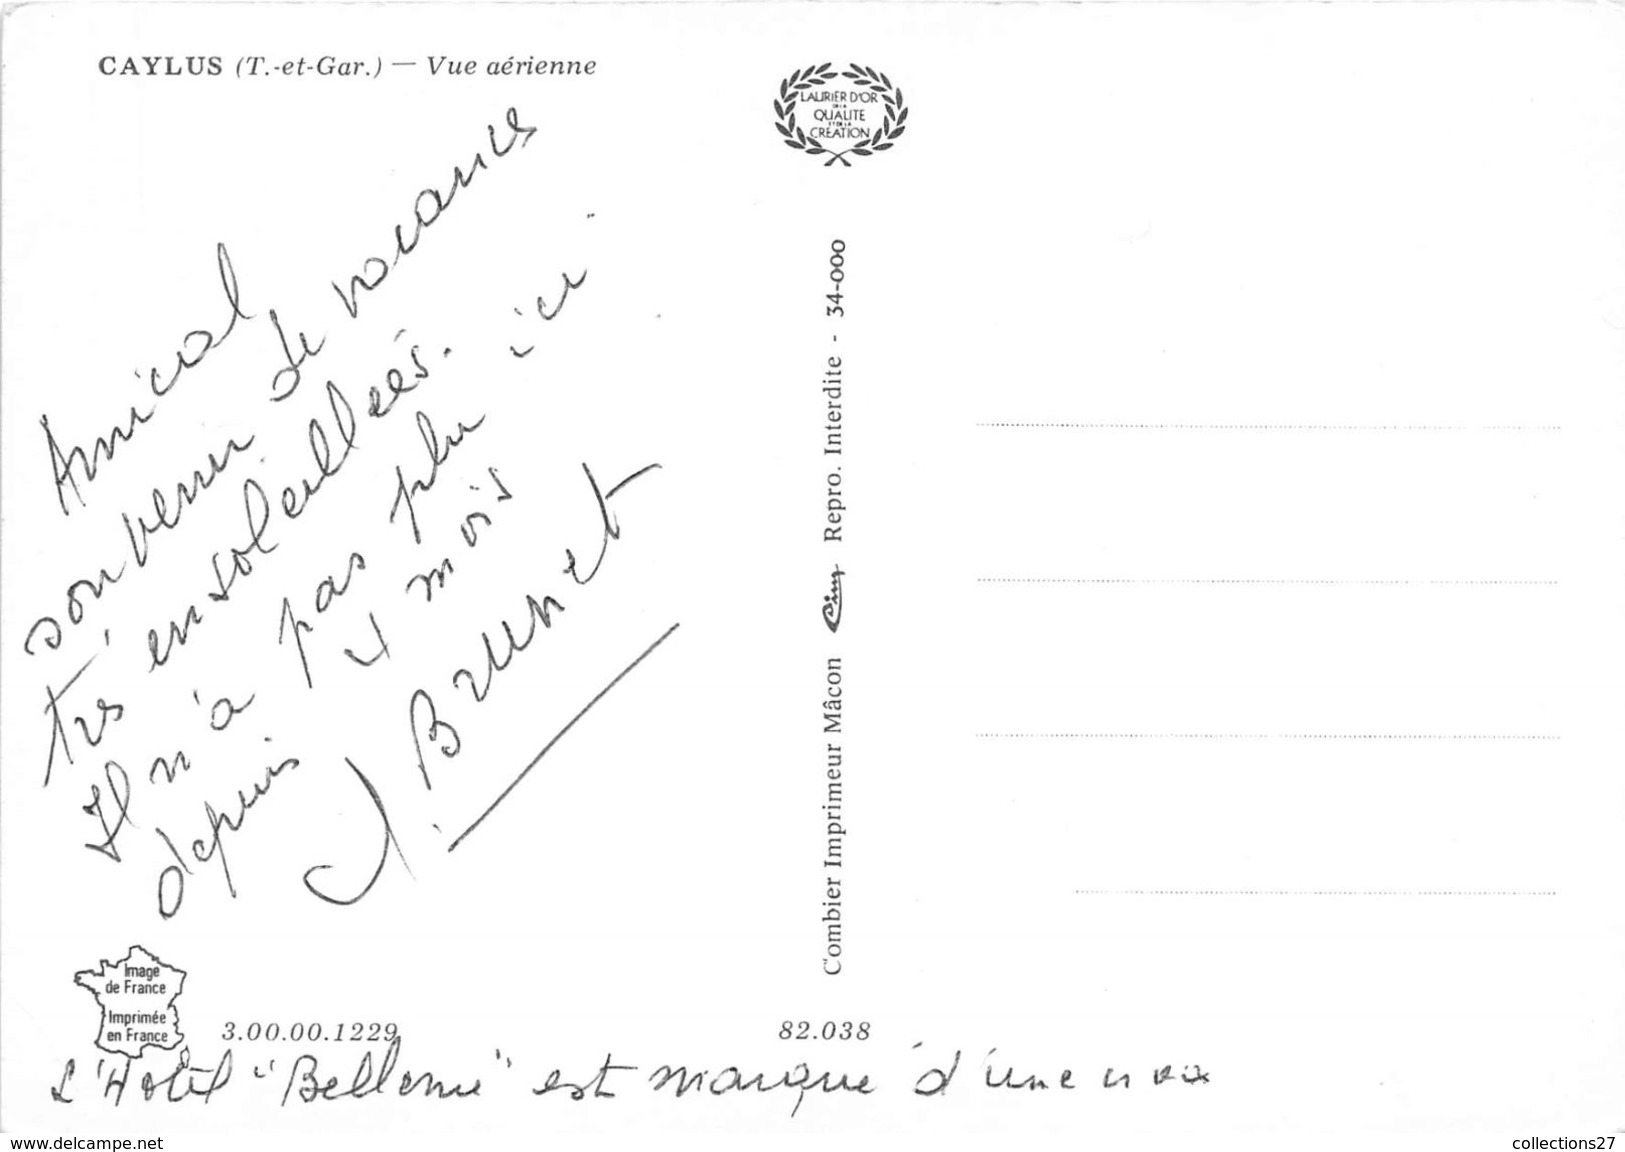 CAYLUS (T.-et-Gar.) — Vue aérienne
LAURIER D'OR
DE LA
QUALITE
ET DE LA
CRÉATION
Amical
souvenir de vacances
très ensoleillées.
Il n'a pas plu ici
depuis 4 mois
J. Brunet
Combier Imprimeur Mâcon Cim Repro. Interdite - 34-000
Image
de France
Imprimée
en France
3.00.00.1229
82.038
L'Hotel "Bellevue" est marqué d'une croix
www.delcampe.net
collections27